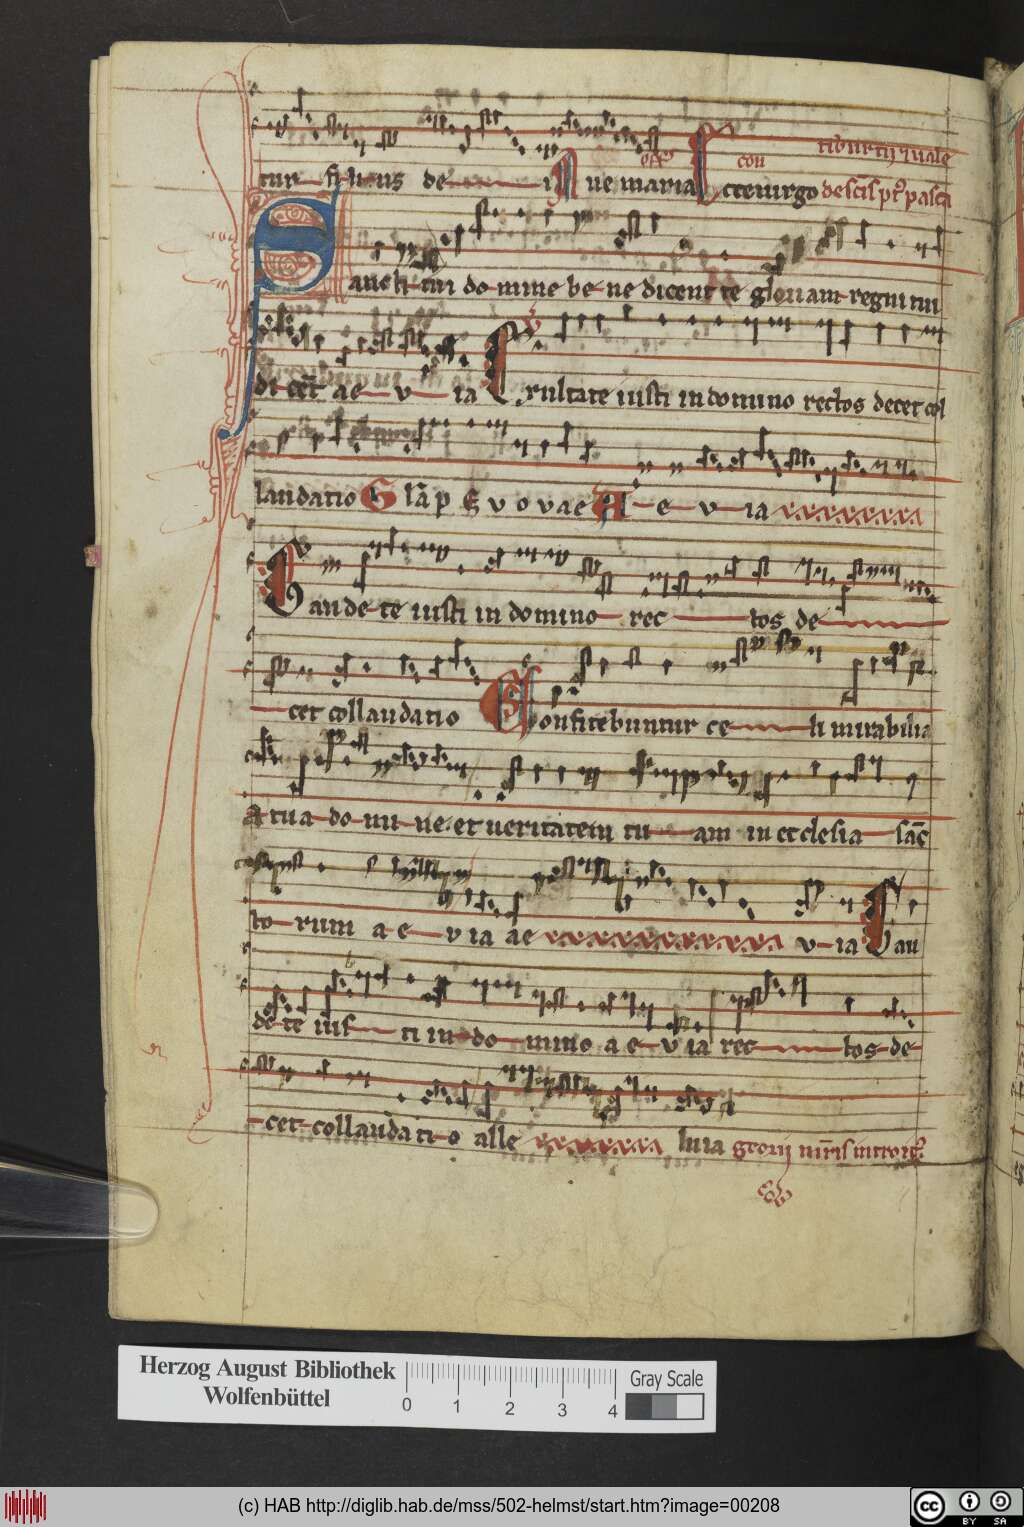 tur filius dei Aue maria off Ecce uirgo con tiburtij ⁊ uale
de scis pꝰ pasca
Sancti tui domine benedicent te gloriam regni tui
dicent aeuia Exultate iusti in domino rectos decet col
laudatio Gła p Euouae Aeuia
Gaudete iusti in domino rectos de
cet collaudatio Confitebuntur celi mirabilia
tua domine et ueritatem tuam in ecclesia sāc
torum aeuia ae uia Gau
dete iusti in domino aeuia rectos de
cet collaudatio alle luia georij mr̄is introitꝰ
Herzog August Bibliothek
Wolfenbüttel
0 1 2 3 4
Gray Scale
(c) HAB http://diglib.hab.de/mss/502-helmst/start.htm?image=00208
cc BY SA